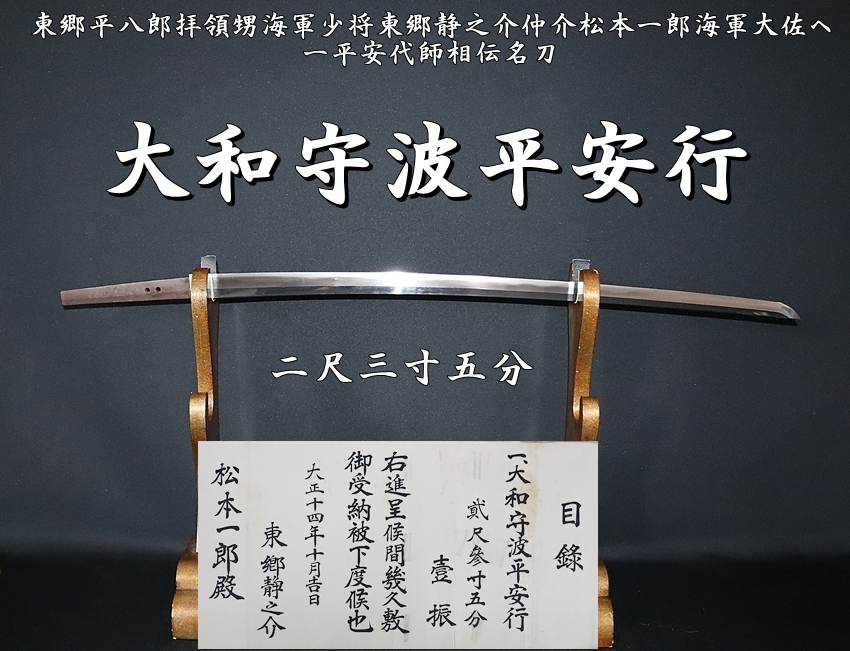 東郷平八郎拝領甥海軍少将東郷静之介仲介松本一郎海軍大佐へ
一平安代師相伝名刀
大和守波平安行
二尺三寸五分
目録
一、大和守波平安行
貳尺参寸五分
壹振
右進呈候間幾久敷
御受納被下度候也
大正十四年十月吉日
東郷静之介
松本一郎殿